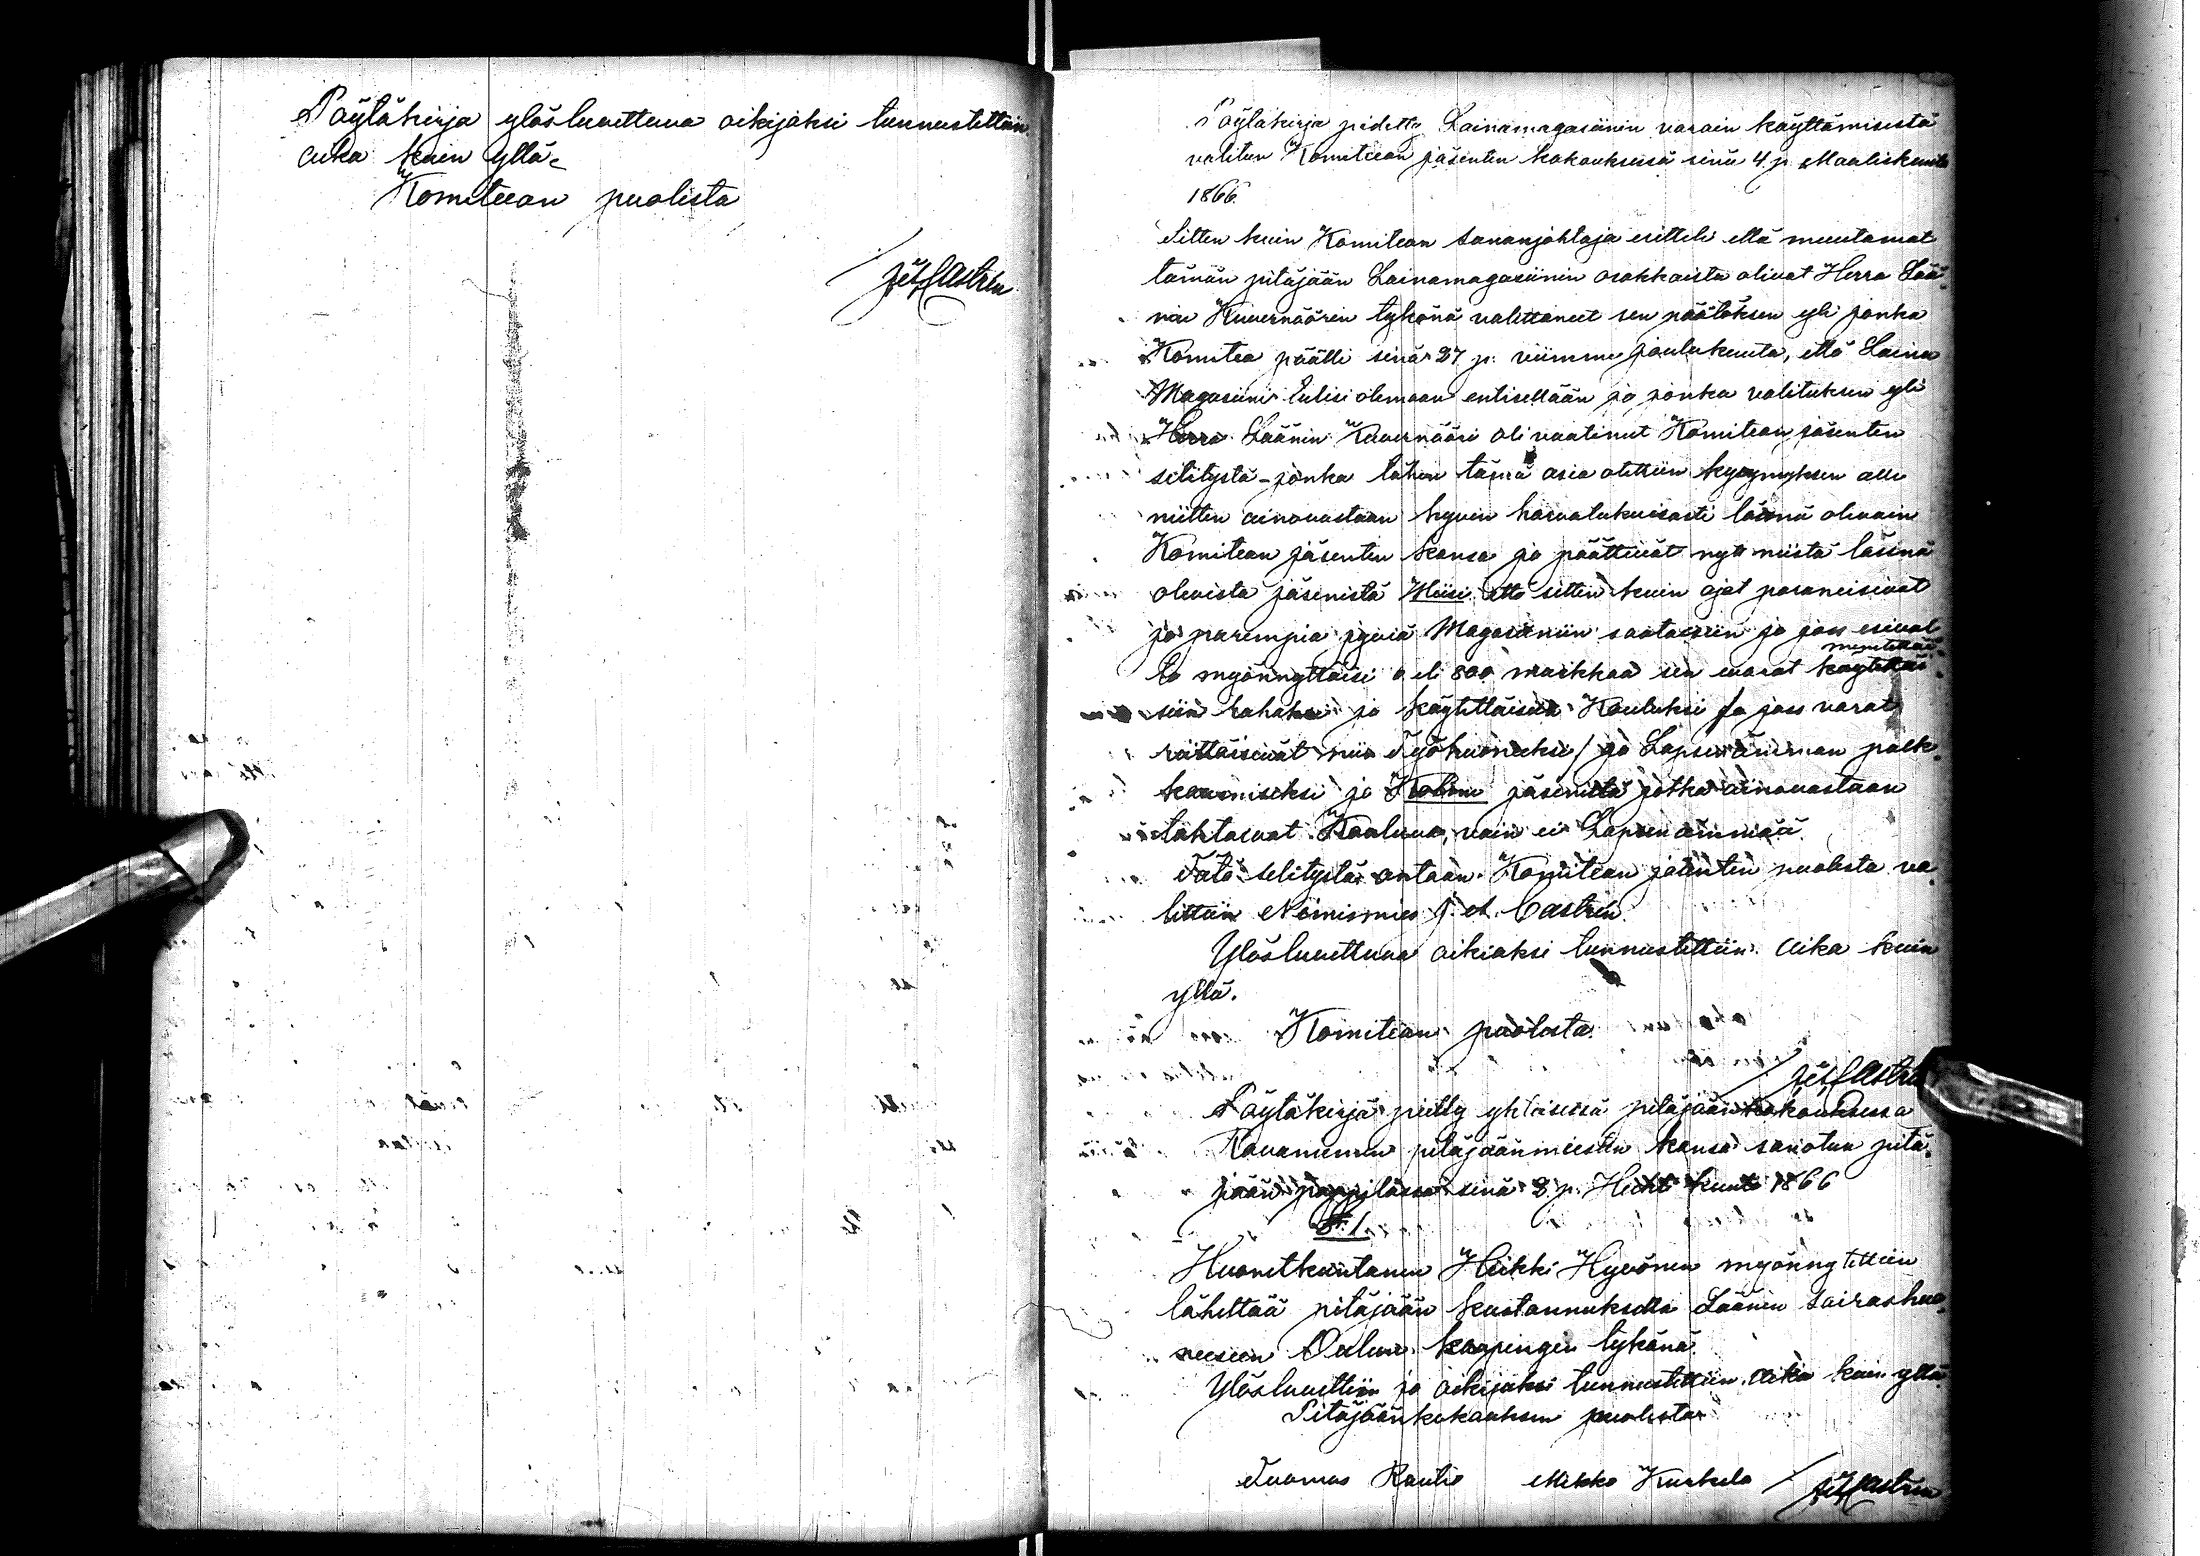 Pöytäkirja ylösluettuna oikijaksi tunnustettiin
aika kuin yllä.
Komiteean puolesta
J. A. Castrén
Pöytäkirja pidetty Lainamagasiinin varain käyttämisestä
valitun Komiteean jäsenten kokouksessa sinä 4 p. Maaliskuuta
1866.
Sitten kuin Komitean sananjohtaja esitteli että muutamat
tämän pitäjään Lainamagasiinin osakkaista olivat Herra Lää-
nin Kuvernöörin tykönä valittaneet sen päätöksen yli jonka
Komitea päätti sinä 27 p. viimme joulukuuta, että Laina
Magasiini tulisi olemaan entisellään ja jonka valituksen yli
Herra Läänin Kuvernööri oli vaatinut Komitean jäsenten
selitystä - jonka tähen tämä asia otettiin kysymyksen alle
niitten ainouastaan hyvin harvalukuisasti läsnä olevain
Komitean jäsenten kansa ja päättivät nyt niistä läsnä
olevista jäsenistä Wiisi että sitten kuin ajat paraneisivat
ja parempia jyviä Magasiniin saataisiin ja jos esival-
ta myönnyttäisi 0 eli 800 markkaa sen varat
muutettai-
siin rahaksi ja käytettäisiin Kouluksi ja jos varat
riittäisivät niin Työhuoneeksi / ja Lapsenämmän palk-
kaamiseksi ja Kolme jäsenistä jotka ainouastaan
tahtoivat Koulua, vain ei Lapsenämmää.
Tätä selitystä antaan Komitean jäsenten puolesta va-
littiin Nimismies J. A. Castrén.
Ylösluettuna oikiaksi tunnustettiin. Aika kuin
yllä.
Komitean puolesta.
J. A. Castrén
Pöytäkirja pietty yhteisessä pitäjäänkokouksessa
pitäjäänmiesten kansa sanotun pitä-
jään pappilassa sinä 8 p. Huhti kuuta 1866
§. 1.
Huonetkuntanen Heikki Hyvönen myönnytettiin
lähettää pitäjään kustannuksella Läänin sairashuo-
neeseen Oulun kaupingin tykönä.
Ylösluettiin ja oikijaksi tunnustettiin. Aika kuin yllä.
Pitäjäänkokouksen puolesta
Tuomas Rautio Mikko Kurkela J. A. Castrén